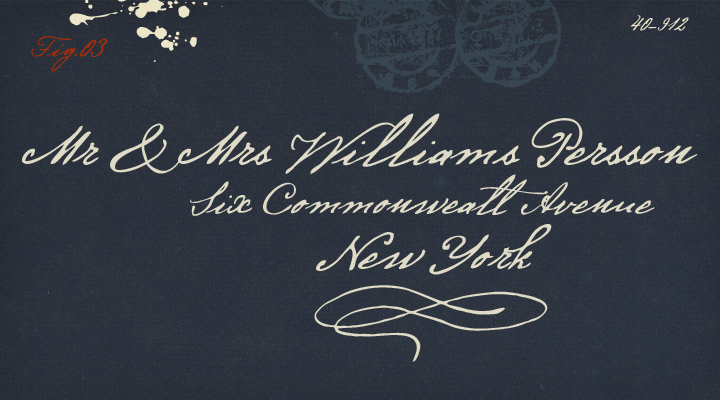 Fig.03
40-912
Mr & Mrs Williams Persson
Six Commonwealt Avenue
New York